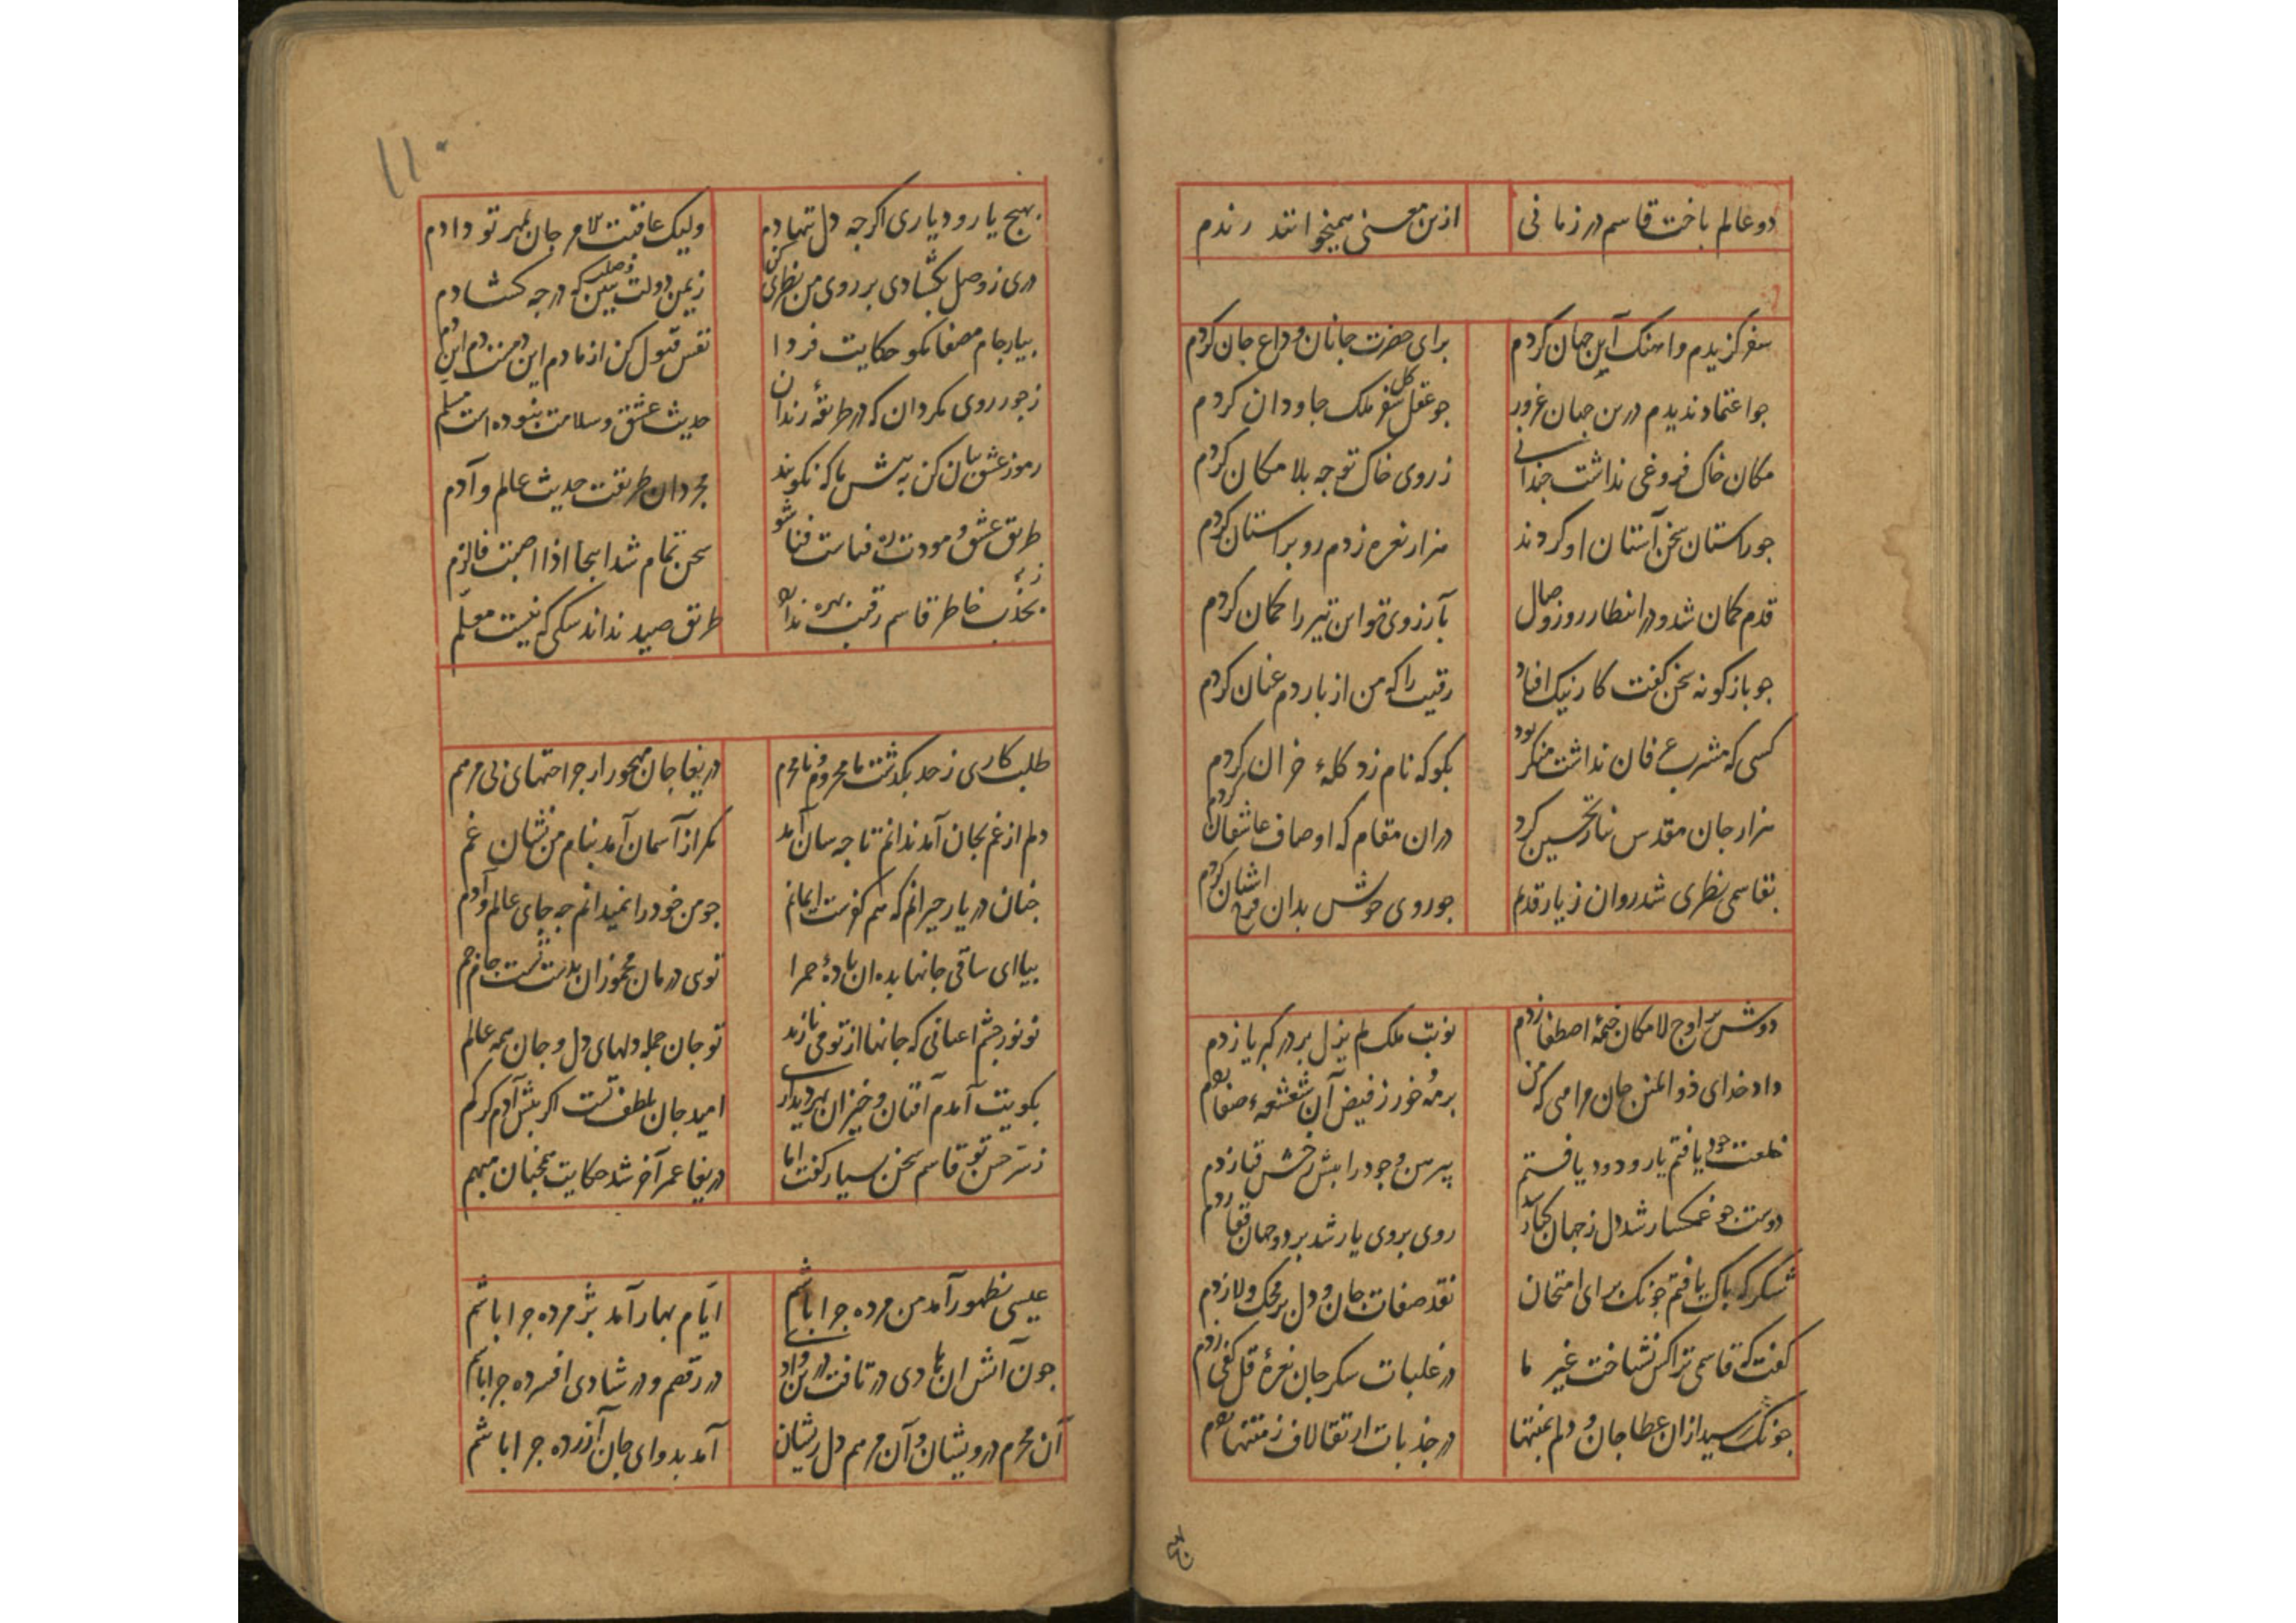 دو عالم باخت قاسم در زمانی ازین معنی همیخوانند رندم
سفر کزیدم و آهنک آن جهان کردم برای حضرت جانان وداع جان کردم
جو اعتماد ندیدم درین جهان غرور جو عقل کل سفر ملک جاودان کردم
مکان خاک فروغی نداشت جندانی ز روی خاک توجه بلامکان کردم
جو راستان سخن آستان او کردند هزار نعره زدم رو بر استان کردم
قدم کمان شد و در انتظار روز وصال بآرزوی تو این تیر را کمان کردم
جو بازکونه سخن کفت کار نیک افتاد رقیب را که من از باردم عنان کردم
کسی که مشرب عرفان نداشت منکر بود بکو که نام زد کلهٔ خران کردم
هزار جان مقدس نثار تحسین کرد دران مقام که اوصاف عاشقان کردم
بقاسمی نظری شد روان ز یار قدیم جو روی خوش بدان فرخ آشیان کردم
دوش بر اوج لامکان خیمهٔ اصطفا زدم نوبت ملک لم یزل بر در کبریا زدم
داد خدای ذوالمنن جان مرا میی که من بر مه و خور ز فیض آن شعشعهٔ صفا زدم
خلعت جود یافتم یار ودود یافتم پیرهن وجود را بیش رخش قبا زدم
دوست جو غمکسار شد دل ز جهان کنار شد روی بروی یار شد بر دو جهان قفا زدم
شکر که باک یافتم جونک برای امتحان نقد صفات جان و دل بر محک ولا زدم
کفت که قاسمی ترا کس نشناخت غیر ما در غلبات سکر جان نعرهٔ قل کفی زدم
جونک رسید ازان عطا جان و دلم بمنتها در جذبات ارتقا لاف ز منتها زدم
بهیج
۱۱۰
بهیج یار و دیاری اکرجه دل ننهادم ولیک عاقبت الامر جان بمهر تو دادم
دری ز وصل بکشادی بر روی من نظری کن ز یمن دولت وصلت ببین که در جه کشادم
بیار جام مصفا مکو حکایت فردا نفس قبول کن از ما دم این دمست دم این دم
ز جور روی مکردان که در طریقهٔ رندان حدیث عشق و سلامت نبوده است مسلم
رموز عشق بیان کن به بیش ما که نکویند مجردان طریقت حدیث عالم و آدم
طریق عشق و مودت ره فناست فنا شو سخن تمام شد اینجا اذا اصبت فالزم
بجذب خاطر قاسم رقیب بهره ندارد طریق صید نداند سکی که نیست معلم
طلب کاری ز حد بکذشت نا محروم و نا محرم دریغا جان مهجور از جراحتهای بی مرهم
دلم از غم بجان آمد ندانم تا جه سان آمد مکر از آسمان آمد بنام من نشان غم
جنان در یار حیرانم که هم کفرست ایمانم جو من خود را نمیدانم جه جای عالم و آدم
بیا ای ساقی جانها بده ان بادهٔ حمرا توی درمان مخموران بدست تست جام جم
تو نور جشم اعیانی که جانها از تو می نازند تو جان جمله دلهای دل و جان همه عالم
بکویت آمدم افتان و خیزان بهر دیداری امید جان بلطف تست اکر بیش آدم کر کم
ز سر حسن تو قاسم سخن بسیار کفت اما دریغا عمر آخر شد حکایت همجنان مبهم
عیسی بظهور آمد من مرده جرا باشم ایام بهار آمد بژمرده جرا باشم
جون آتش ان بادی در تافت درین وادی در رقص و در شادی افسرده جرا باشم
آن محرم درویشان و آن مرهم دل ریشان آمد بدوای جان آزرده جرا باشم